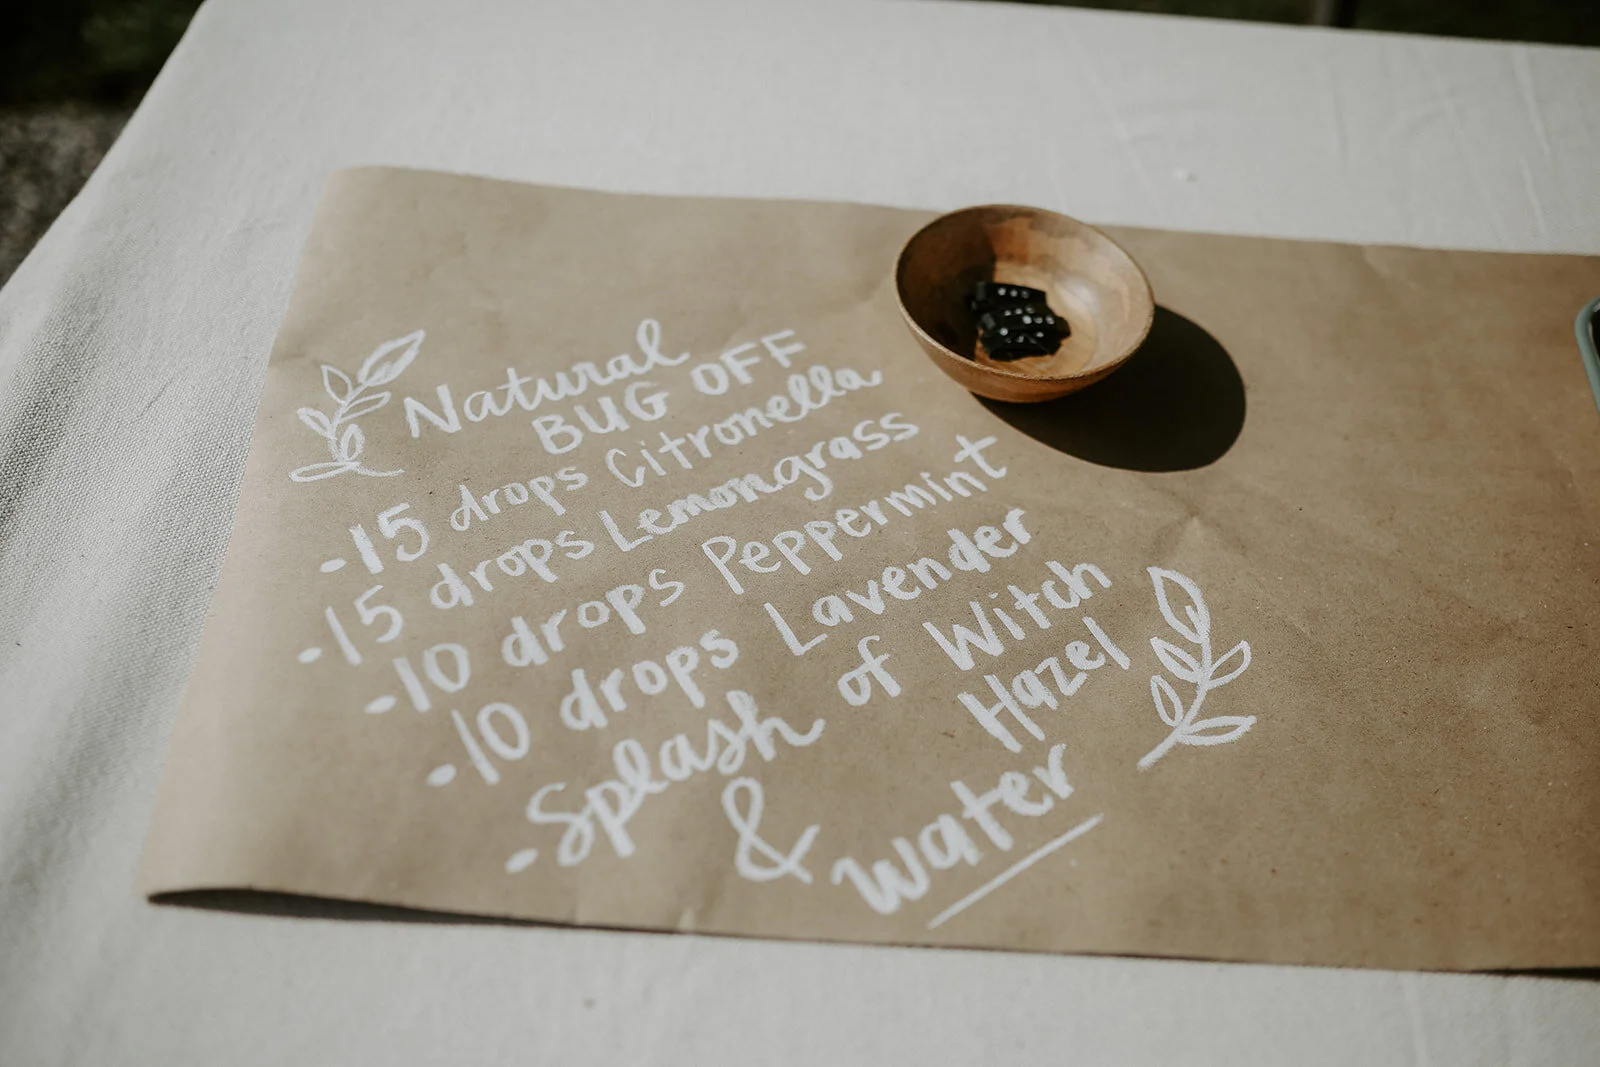 Natural
BUG OFF
-15 drops Citronella
-15 drops Lemongrass
-10 drops Peppermint
-10 drops Lavender
-Splash of Witch
Hazel
& water